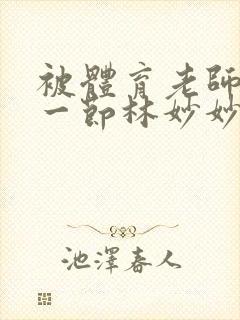 被體育老師
一節林妙妙
池澤春人